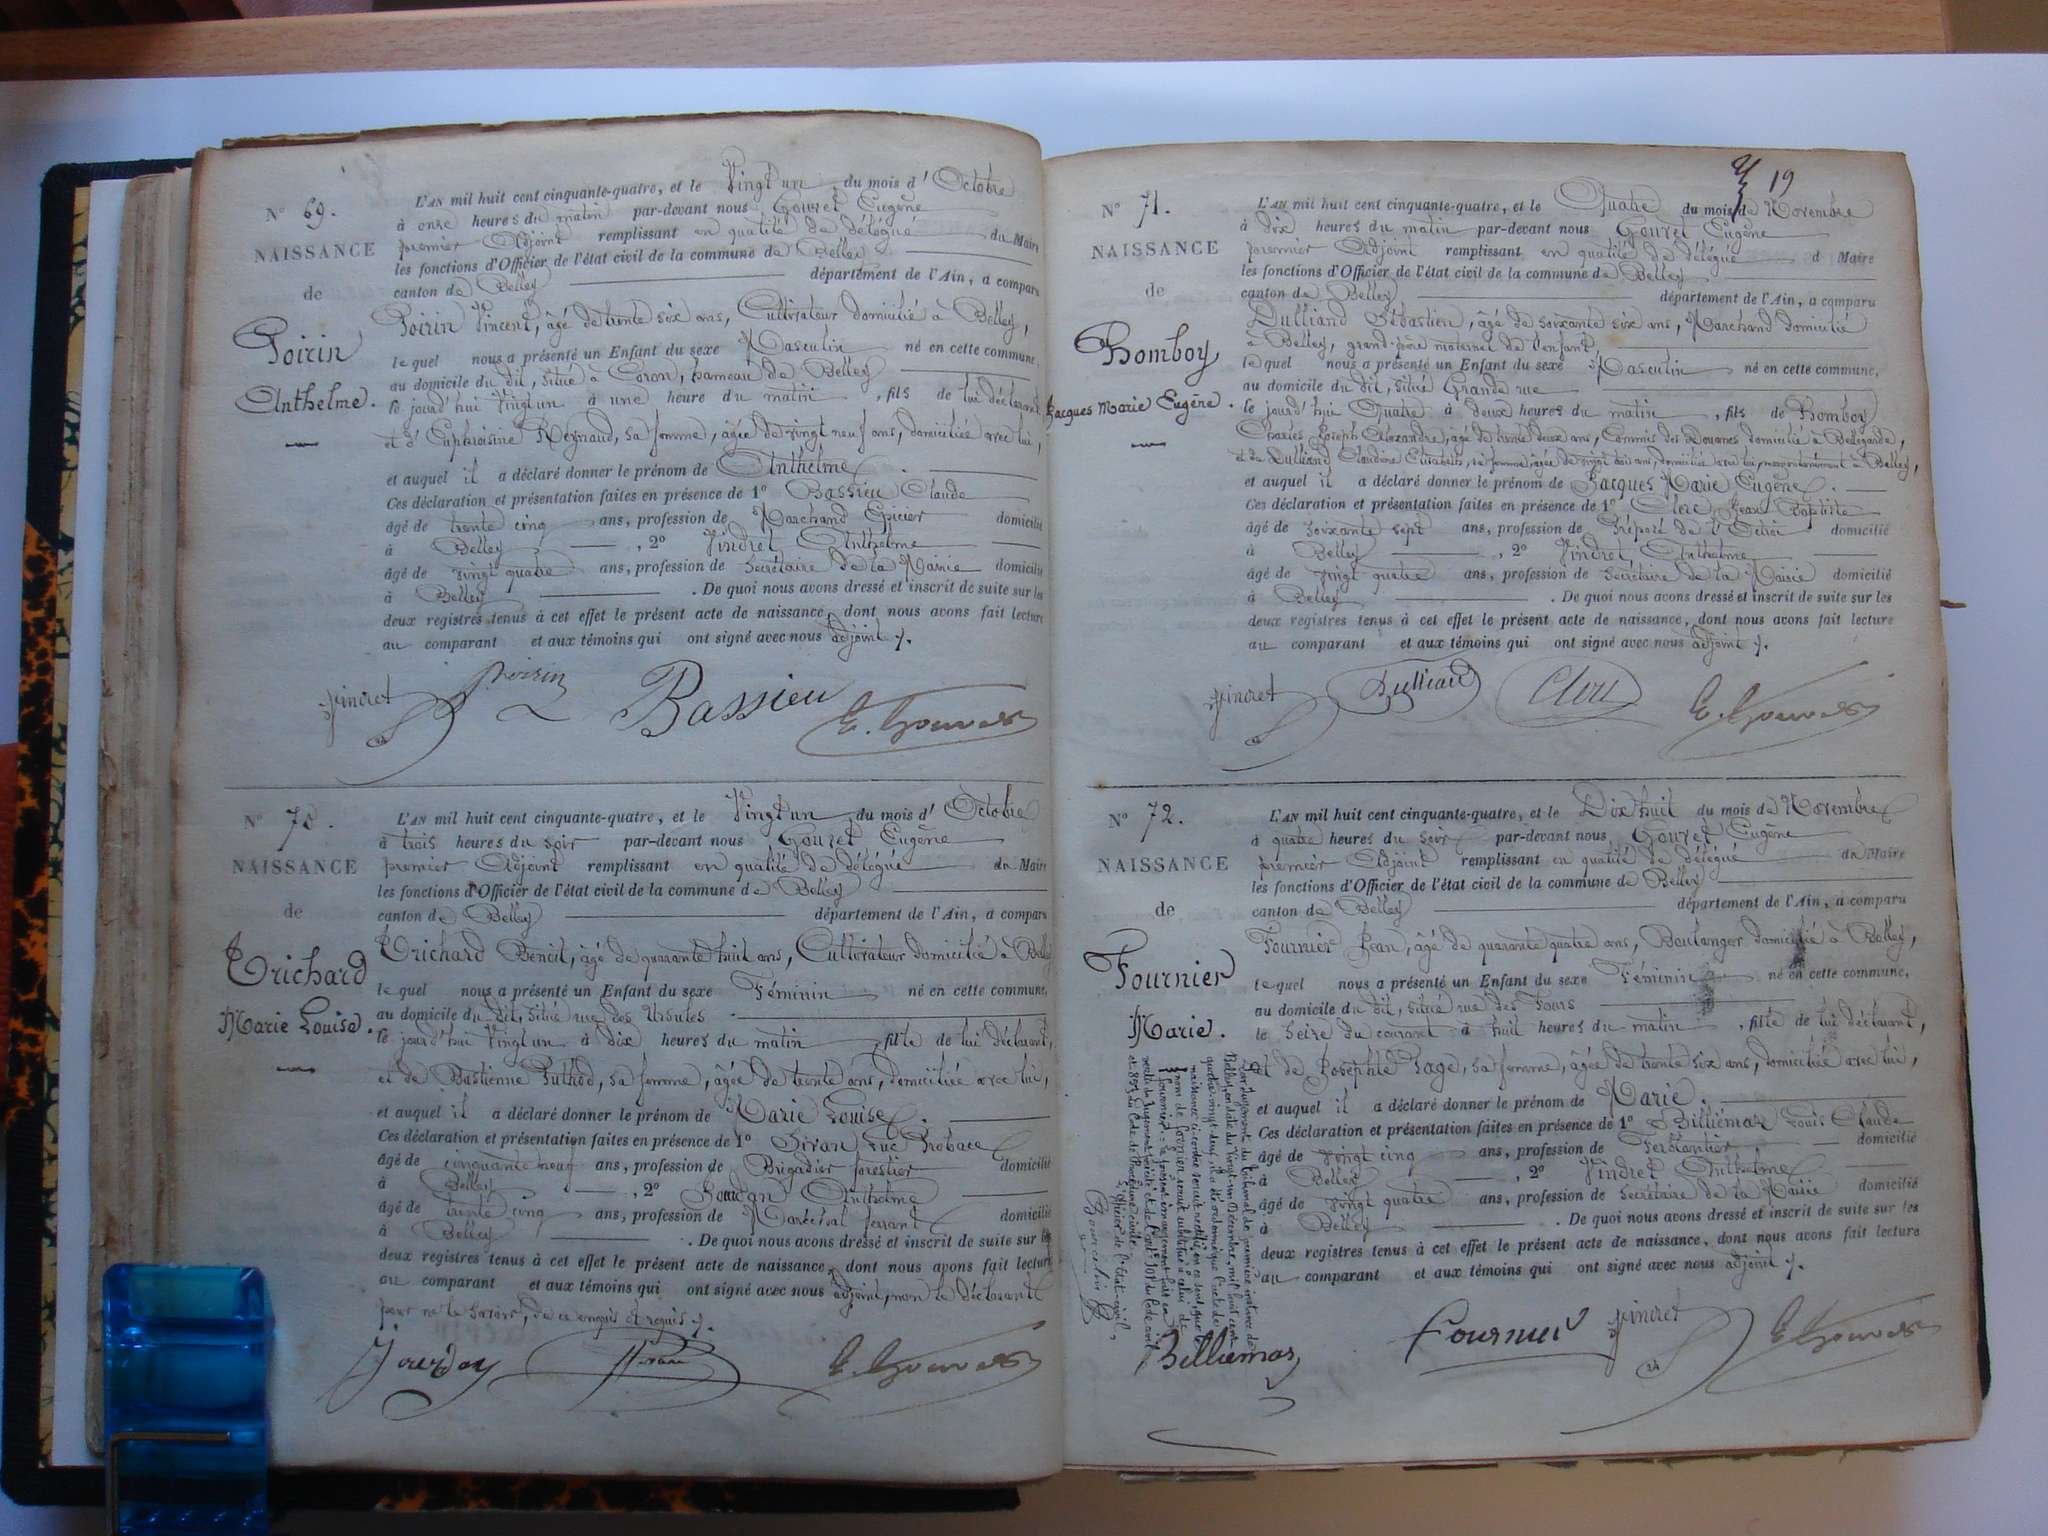 N° 69.
NAISSANCE
de
Poirin
Anthelme.
L'AN mil huit cent cinquante-quatre, et le Vingt un du mois d'Octobre
à onze heures du matin par-devant nous Gouvet Eugène
premier Adjoint remplissant en qualité de délégué du Maire
les fonctions d'Officier de l'état civil de la commune de Belley
canton de Belley département de l'Ain, a comparu
Poirin Vincent, âgé de trente six ans, Cultivateur domicilié à Belley,
le quel nous a présenté un Enfant du sexe Masculin né en cette commune,
au domicile du dit, situé à Coron, hameau de Belley
le jourd'hui Vingt un à une heure du matin, fils de lui déclarant
et d'Euphroisine Reynaud, sa femme, âgée de vingt neuf ans, domiciliée avec lui,
et auquel il a déclaré donner le prénom de Anthelme.
Ces déclaration et présentation faites en présence de 1° Bassieu Claude
âgé de trente cinq ans, profession de Marchand Epicier domicilié
à Belley, 2° Vindret Anthelme
âgé de vingt quatre ans, profession de Secrétaire de la Mairie domicilié
à Belley. De quoi nous avons dressé et inscrit de suite sur les
deux registres tenus à cet effet le présent acte de naissance, dont nous avons fait lecture
au comparant et aux témoins qui ont signé avec nous adjoint.
Vindret Poirin Bassieu E. Gouvet
N° 70.
NAISSANCE
de
Trichard
Marie Louise.
L'AN mil huit cent cinquante-quatre, et le Vingt un du mois d'Octobre
à trois heures du soir par-devant nous Gouvet Eugène
premier Adjoint remplissant en qualité de délégué du Maire
les fonctions d'Officier de l'état civil de la commune de Belley
canton de Belley département de l'Ain, a comparu
Trichard Benoit, âgé de quarante huit ans, Cultivateur domicilié à Belley
le quel nous a présenté un Enfant du sexe Féminin né en cette commune,
au domicile du dit, situé rue des Ursules
le jourd'hui Vingt un à dix heures du matin, fille de lui déclarant,
et de Bastienne Puthod, sa femme, âgée de trente ans, domiciliée avec lui,
et auquel il a déclaré donner le prénom de Marie Louise.
Ces déclaration et présentation faites en présence de 1° Sivan Luc Probace
âgé de cinquante neuf ans, profession de Brigadier forestier domicilié
à Belley, 2° Jourdan Anthelme
âgé de trente cinq ans, profession de Maréchal ferrant domicilié
à Belley. De quoi nous avons dressé et inscrit de suite sur les
deux registres tenus à cet effet le présent acte de naissance, dont nous avons fait lecture
au comparant et aux témoins qui ont signé avec nous adjoint, non le déclarant
pour ne le savoir, de ce enquis et requis.
Jourdan Sivan E. Gouvet
19
N° 71.
NAISSANCE
de
Bomboy
Jacques Marie Eugène.
L'AN mil huit cent cinquante-quatre, et le Quatre du mois de Novembre
à dix heures du matin par-devant nous Gouvet Eugène
premier Adjoint remplissant en qualité de délégué d Maire
les fonctions d'Officier de l'état civil de la commune de Belley
canton de Belley département de l'Ain, a comparu
Dulliand Sébastien, âgé de soixante six ans, Marchand domicilié
à Belley, grand-père maternel de l'enfant,
le quel nous a présenté un Enfant du sexe Masculin né en cette commune,
au domicile du dit, situé Grande rue
le jourd'hui Quatre à deux heures du matin, fils de Bomboy
Charles Joseph Alexandre, âgé de trente deux ans, Commis des Douanes domicilié à Bellegarde,
et de Dulliand Claudine Elisabeth, sa femme, âgée de vingt trois ans, domiciliée avec lui, momentanément à Belley,
et auquel il a déclaré donner le prénom de Jacques Marie Eugène.
Ces déclaration et présentation faites en présence de 1° Clerc Jean Baptiste
âgé de soixante sept ans, profession de Préposé de l'Octroi domicilié
à Belley, 2° Vindret Anthelme
âgé de vingt quatre ans, profession de Secrétaire de la Mairie domicilié
à Belley. De quoi nous avons dressé et inscrit de suite sur les
deux registres tenus à cet effet le présent acte de naissance, dont nous avons fait lecture
au comparant et aux témoins qui ont signé avec nous adjoint.
Vindret Dulliand Clerc E. Gouvet
N° 72.
NAISSANCE
de
Fournier
Marie.
L'AN mil huit cent cinquante-quatre, et le Dix huit du mois de Novembre
à quatre heures du soir par-devant nous Gouvet Eugène
premier Adjoint remplissant en qualité de délégué du Maire
les fonctions d'Officier de l'état civil de la commune de Belley
canton de Belley département de l'Ain, a comparu
Fournier Jean, âgé de quarante quatre ans, Boulanger domicilié à Belley,
le quel nous a présenté un Enfant du sexe Féminin né en cette commune,
au domicile du dit, situé rue des Fours
le Seize du courant à huit heures du matin, fille de lui déclarant,
et de Josephte Sage, sa femme, âgée de trente six ans, domiciliée avec lui,
et auquel il a déclaré donner le prénom de Marie.
Ces déclaration et présentation faites en présence de 1° Billiémaz Louis Claude
âgé de vingt cinq ans, profession de Ferblantier domicilié
à Belley, 2° Vindret Anthelme
âgé de vingt quatre ans, profession de Secrétaire de la Mairie domicilié
à Belley. De quoi nous avons dressé et inscrit de suite sur les
deux registres tenus à cet effet le présent acte de naissance, dont nous avons fait lecture
au comparant et aux témoins qui ont signé avec nous adjoint.
Par Jugement du tribunal de première instance de
Belley, en date du Vingt-un Décembre, mil huit cent
quatre-vingt-neuf, il a été ordonné que l'acte de
naissance ci-contre serait rectifié en ce sens que le
nom de serait substitué à celui de
Fournier
et 857 du Code de Procédure civile.
L'Officier de l'Etat civil,
Billiémaz Fournier Vindret E. Gouvet